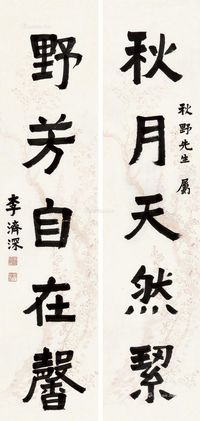 秋月天然絜
秋野先生 属
野芳自在馨
李濟深